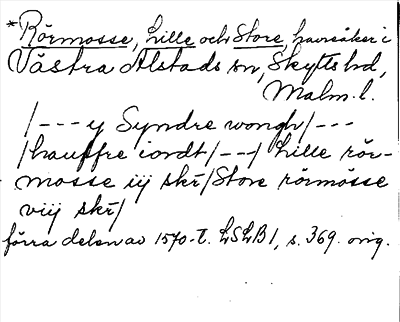 *Rörmosse, Lille och Store, havreåker i
Västra Alstads sn, Skytts hd,
Malm. l.
/---y Syndre wongh/---
/hauffre iordt/---/ Lille rör-
mosse iij skr̄/Store rörmosse
viij skr̄/
förra delen av 1570-t. LSLB 1, s. 369. orig.